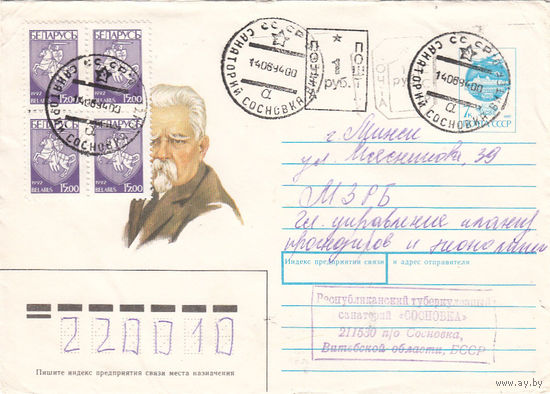 БЕЛАРУСЬ БЕЛАРУСЬ
1992 BELARUS 15.00 1992 BELARUS 15.00
1992 BELARUS 15.00 1992 BELARUS 15.00
СССР
САНАТОРИЙ СОСНОВКА
14069400
а
1 руб.
СССР
САНАТОРИЙ СОСНОВКА
14069400
а
СССР
г. Минск
ул. Мясникова, 39
МЗРБ
Гл. управление
Индекс предприятия связи и адрес отправителя
Республиканский туберкулезный
санаторий «СОСНОВКА»
211530 п/о Сосновка,
Витебской области, БССР
220010
Пишите индекс предприятия связи места назначения
www.ay.by